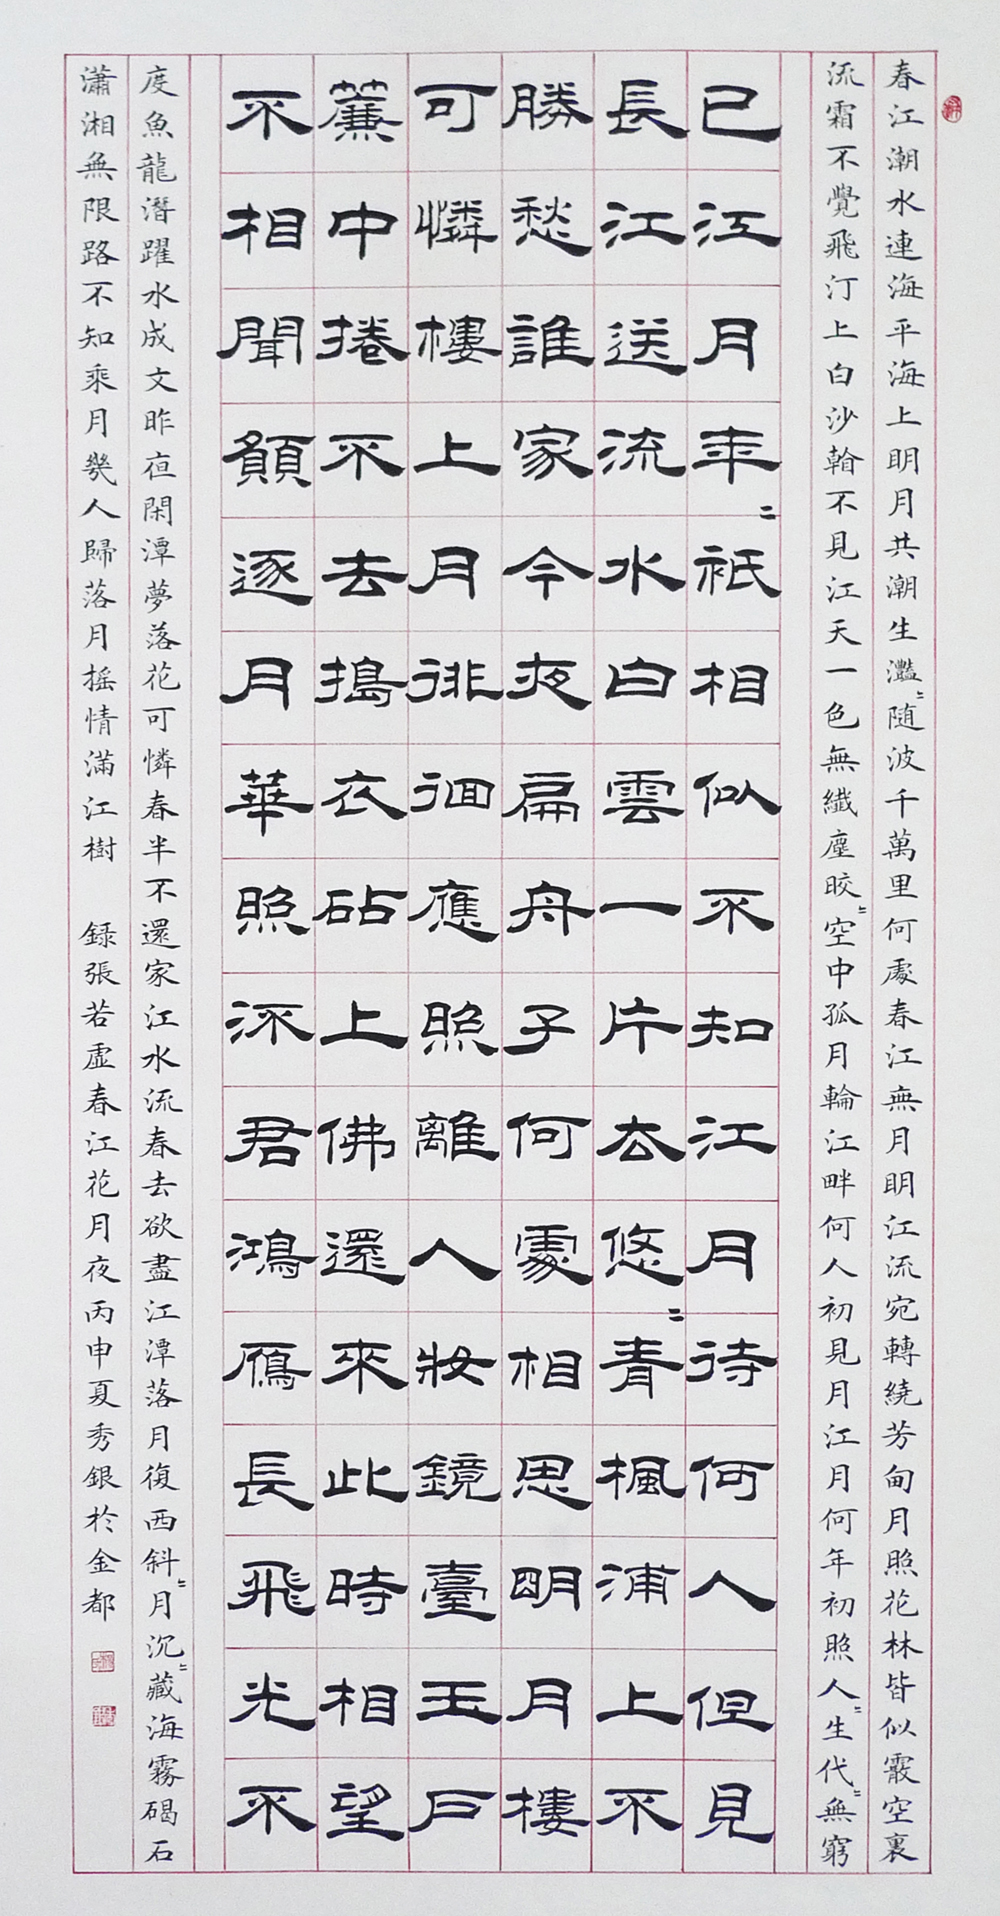 春江潮水連海平海上明月共潮生灩〻随波千萬里何處春江無月明江流宛轉繞芳甸月照花林皆似霰空裏
流霜不覺飛汀上白沙翰不見江天一色無纖塵皎〻空中孤月輪江畔何人初見月江月何年初照人〻生代〻無窮
已江月年〻祇相似不知江月待何人但見
長江送流水白雲一片去悠〻青楓浦上不
勝愁誰家今夜扁舟子何處相思明月樓
可憐樓上月徘徊應照離人妝鏡臺玉戶
簾中捲不去搗衣砧上佛還來此時相望
不相聞願逐月華照流君鴻雁長飛光不
度魚龍潛躍水成文昨夜閑潭夢落花可憐春半不還家江水流春去欲盡江潭落月復西斜〻月沉〻藏海霧碣石
瀟湘無限路不知乘月幾人歸落月摇情滿江樹 録張若虛春江花月夜丙申夏秀銀於金都